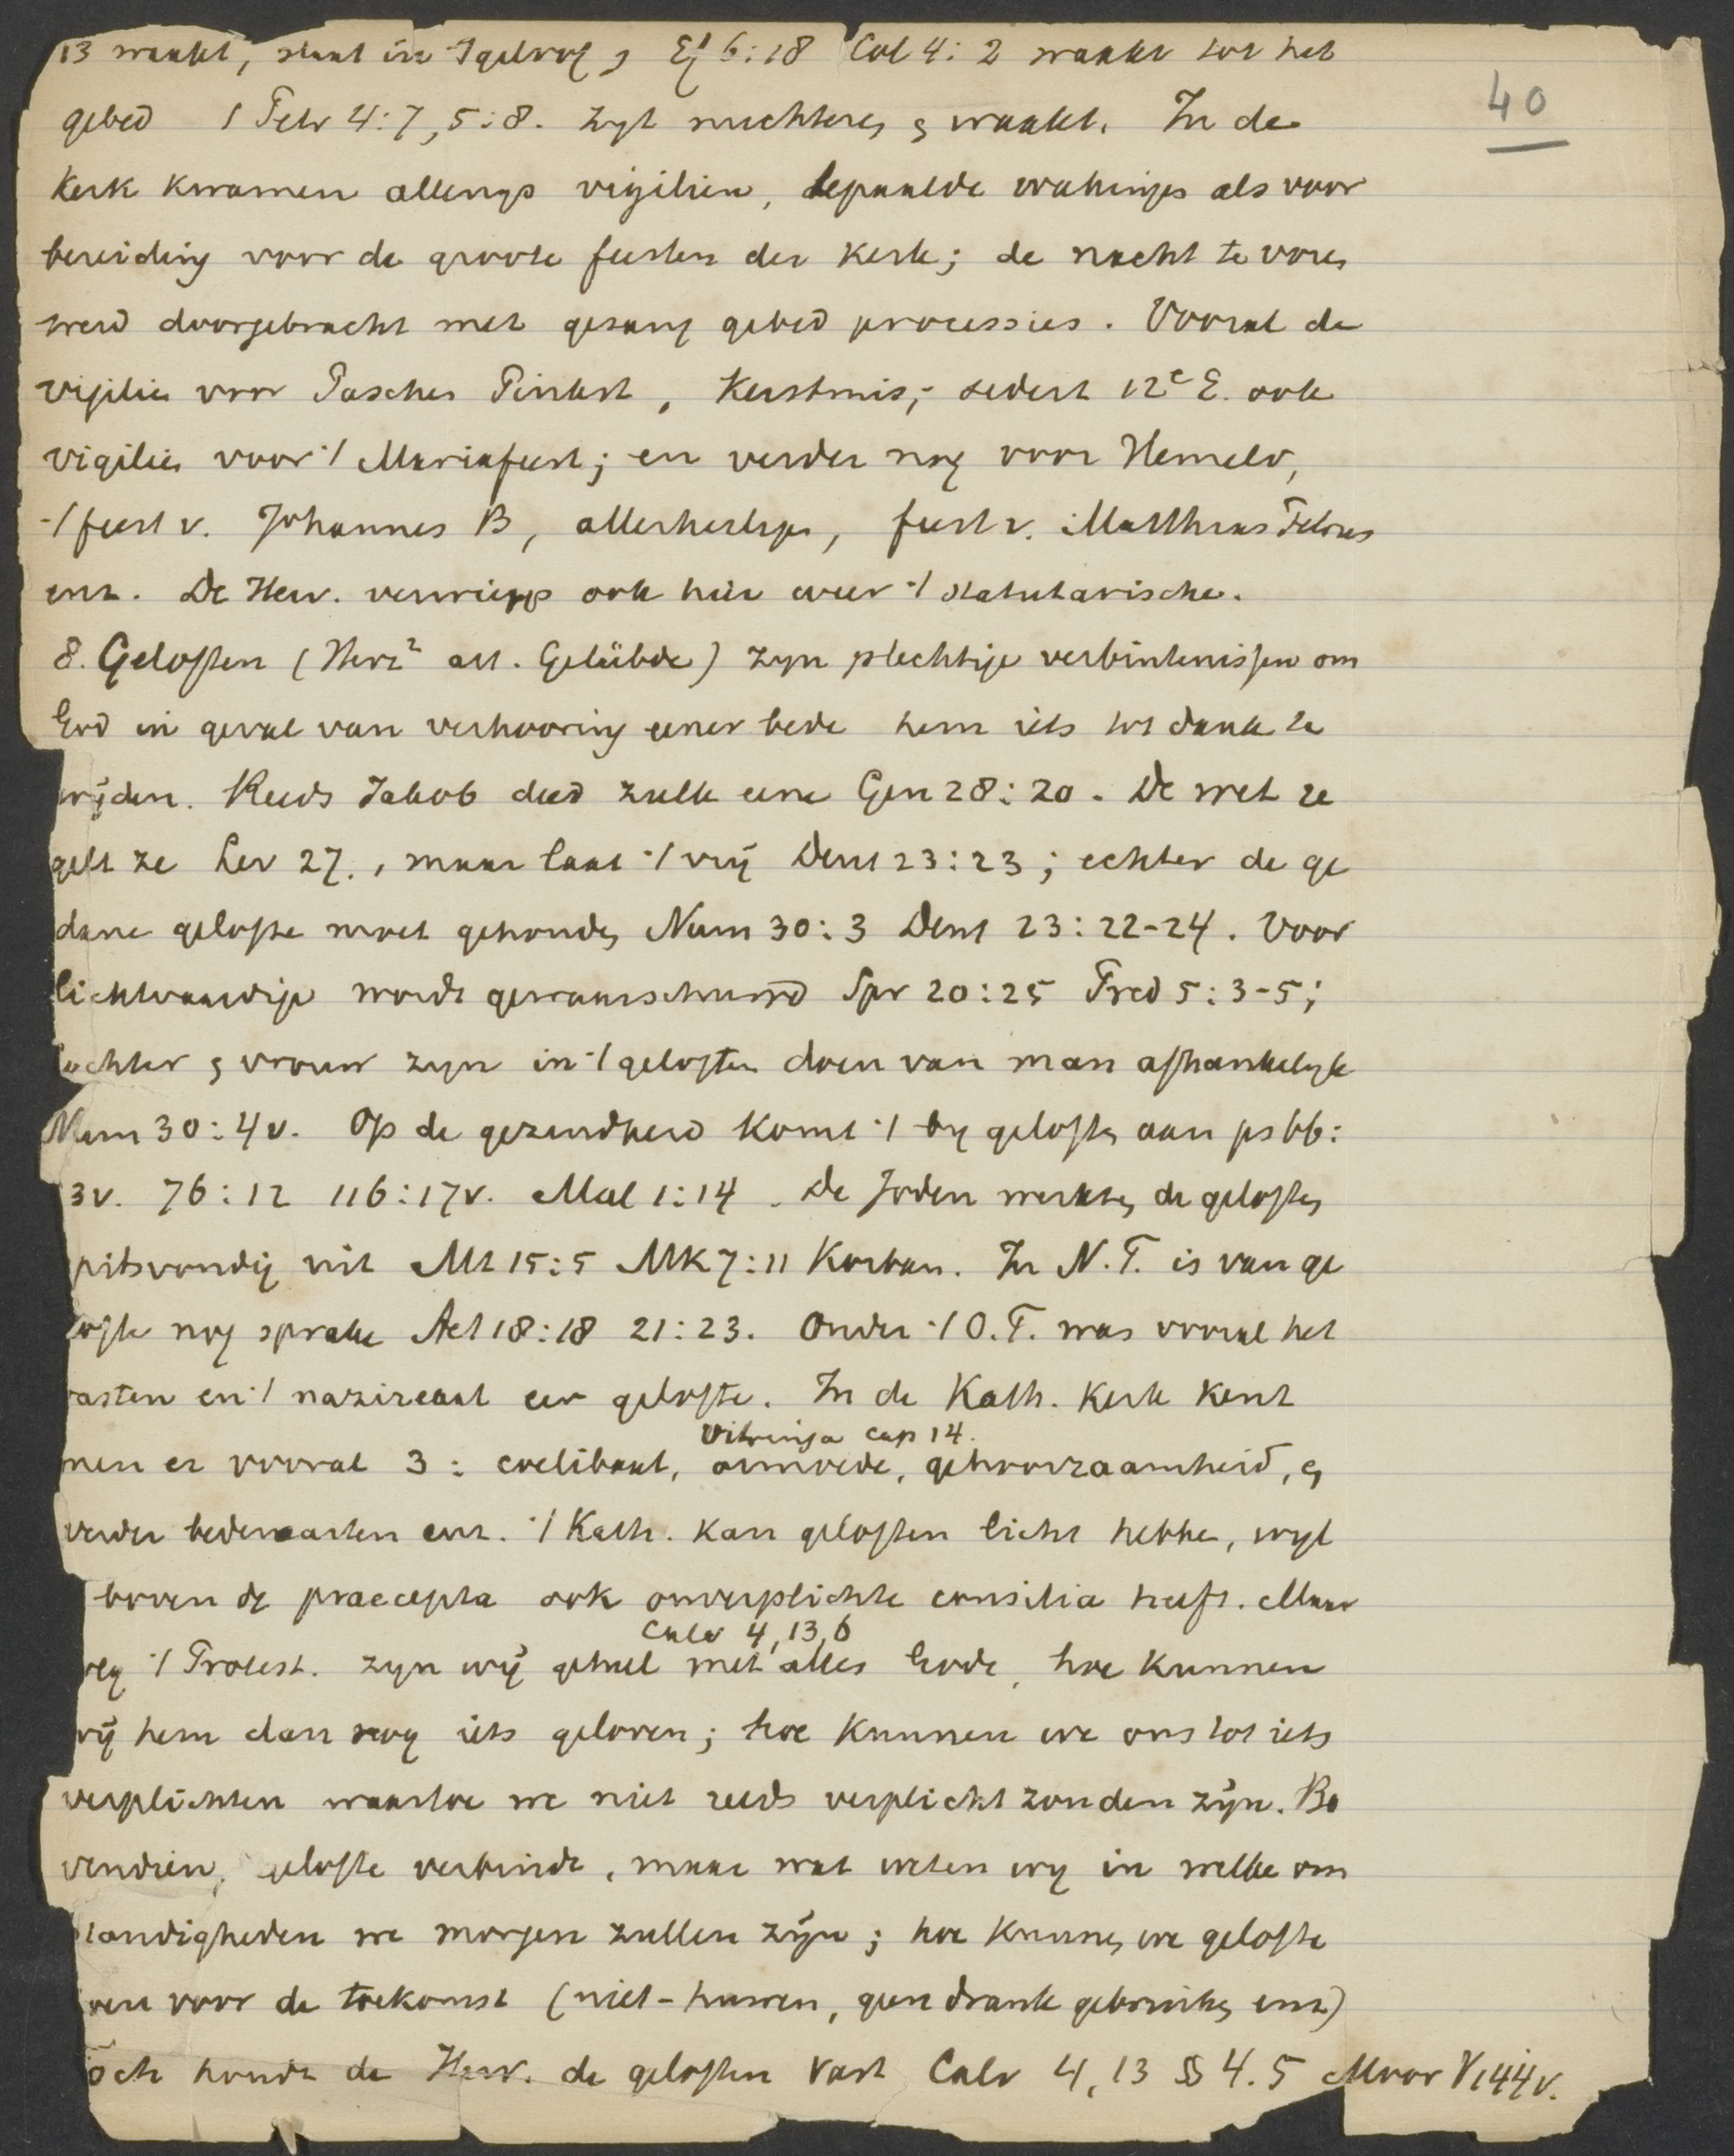 13 waakt, staat in 't geloof, Ef 6:18 Col 4:2 waakt tot het
40
gebed 1 Petr 4:7, 5:8. zyt nuchteren en waakt. In de
Kerk kwamen allengs vigiliën, bepaalde wakinges als voor
bereiding voor de groote feesten der Kerk; de nacht te voren
werd doorgebracht met gezang gebed processies. Vooral de
vigilies voor Paschen Pinkst, Kerstmis; sedert 12e E. ook
vigilies voor 't Mariafeest; en verder nog voor Hemelv,
't feest v. Johannes B, allerheiligen, feest v. Matthaeus Petrus
enz. De Herv. verwierp ook hier weer 't statutarische.
8. Geloften (Herz² art. Gelübde) zyn plechtige verbintenissen om
God in geval van verhooring eener bede hem iets tot dank te
wijden. Reeds Jakob deed zulk eene Gen 28:20. De wet re
gelt ze Lev 27., maar laat 't vrij Deut 23:23; echter de ge
dane gelofte moet gehouden Num 30:3 Deut 23:22-24. Voor
lichtvaardige wordt gewaarschuwd Spr 20:25 Pred 5:3-5;
dochter en vrouw zyn in 't geloften doen van man afhankelyk
Num 30:4v. Op de gezindheid komt 't by geloften aan ps 66:
3v. 76:12 116:17v. Mal 1:14. De Joden werkten de geloften
spitsvondig uit Mt 15:5 Mk 7:11 Korban. In N.T. is van ge
lofte nog sprake Act 18:18 21:23. Onder 't O.T. was vooral het
vasten en 't nazireaat een gelofte. In de Kath. Kerk kent
Vitringa cap 14.
men er vooral 3: coelibaat, armoede, gehoorzaamheid, en
verder bedevaarten enz. 't Kath. kan geloften licht hebben, wyl
boven de praecepta ook onverplichte consilia heeft. Maar
Calv 4,13,6
volg 't Protest. zyn wij geheel met alles Gode, hoe kunnen
wij hem dan nog iets geloven; hoe kunnen we ons tot iets
verplichten waartoe we niet reeds verplicht zouden zijn. Bo
vendien, gelofte verbindt, maar wat weten wy in welke om
standigheden we morgen zullen zijn; hoe kunnen we gelofte
doen voor de toekomst (niet-huwen, geen drank gebruiken enz)
Toch houdt de Herv. de geloften vast Calv 4,13 §§ 4.5 Moor V 144v.